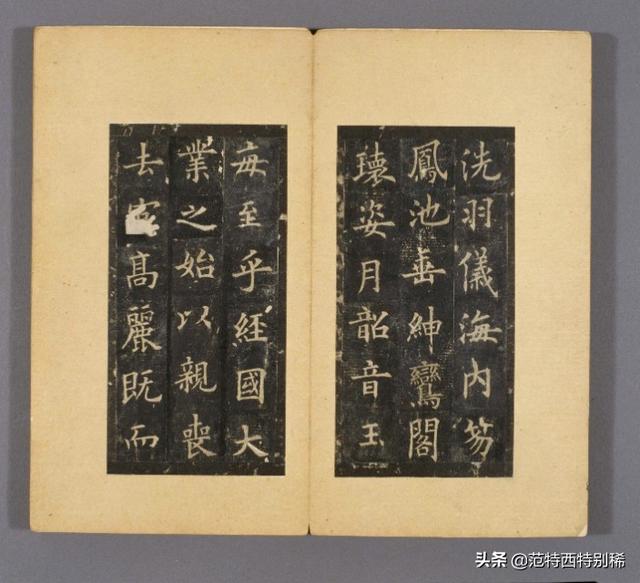 洗羽儀海内笏
鳳池垂紳鸞閣
瓌姿月韶音玉
每至乎經國大
業之始以親喪
去官高麗既而
头条@范特西特别稀